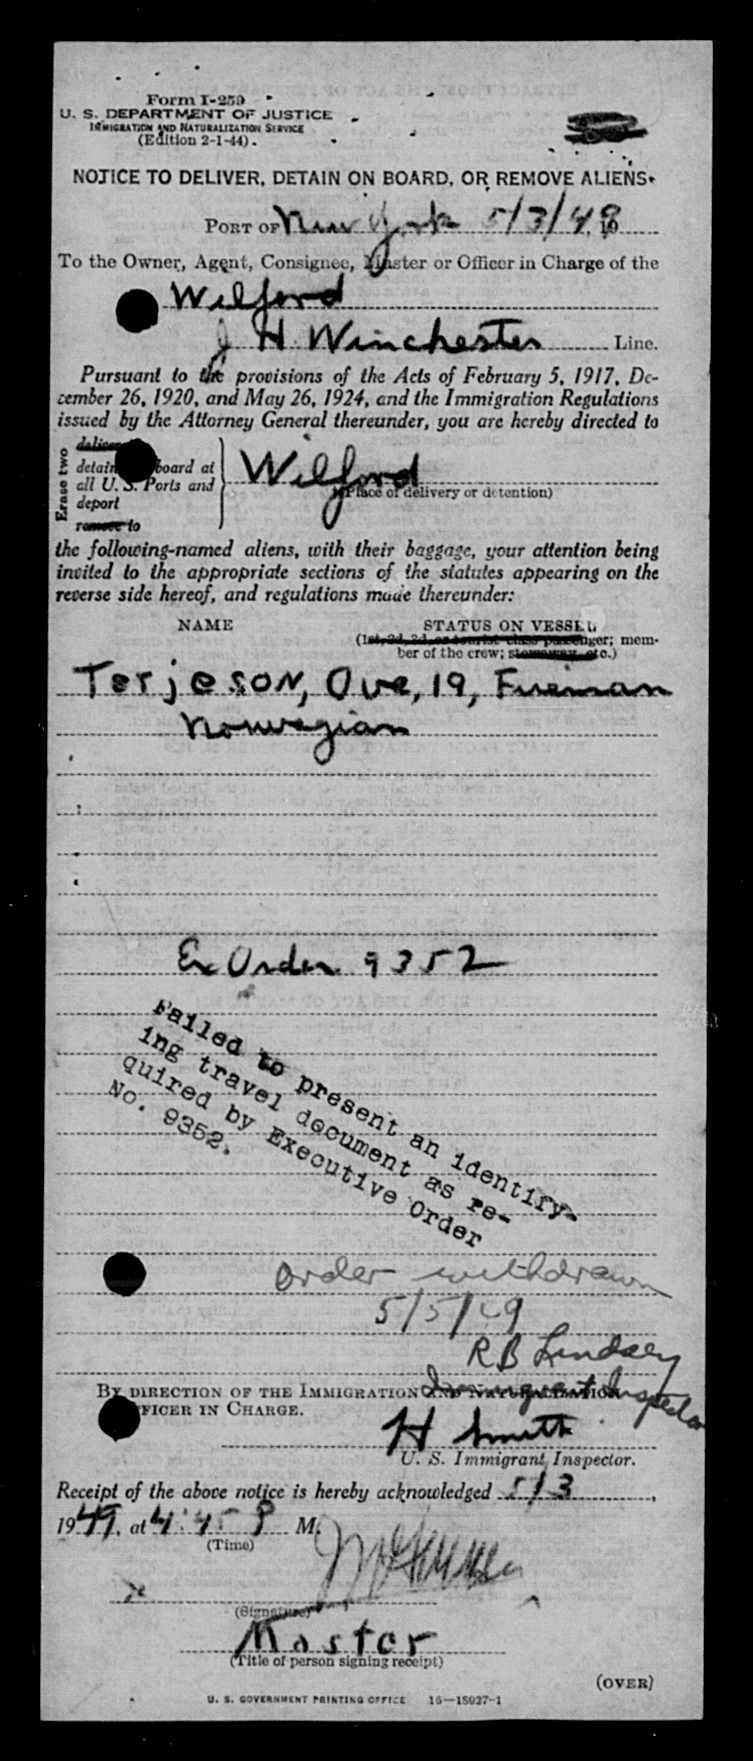 Form I-259
U. S. DEPARTMENT OF JUSTICE
IMMIGRATION AND NATURALIZATION SERVICE
(Edition 2-1-44)
NOTICE TO DELIVER, DETAIN ON BOARD, OR REMOVE ALIENS
PORT OF New York 5/3/49, 19
To the Owner, Agent, Consignee, Master or Officer in Charge of the
Wilford
J H Winchester Line.
Pursuant to the provisions of the Acts of February 5, 1917, De-
cember 26, 1920, and May 26, 1924, and the Immigration Regulations
issued by the Attorney General thereunder, you are hereby directed to
Erase two
detain board at
all U. S. Ports and
deport
remove to
Wilford
(Place of delivery or detention)
the following-named aliens, with their baggage, your attention being
invited to the appropriate sections of the statutes appearing on the
reverse side hereof, and regulations made thereunder:
NAME STATUS ON VESSEL
(1st, 2d, 3d, or tourist class passenger; mem-
ber of the crew; stowaway, etc.)
Terjeson, Ove, 19, Fireman
Norwegian
Ex Order 9352
Failed to present an identify-
ing travel document as re-
quired by Executive Order
No. 9352.
Order withdrawn
5/5/49
RB Lindsey
Immigrant Inspector
BY DIRECTION OF THE IMMIGRATION AND NATURALIZATION
FICER IN CHARGE.
H Smith
U. S. Immigrant Inspector.
Receipt of the above notice is hereby acknowledged 5/3,
1949, at 4:45 P M.
(Time)
(Signature)
Master
(Title of person signing receipt)
(OVER)
U. S. GOVERNMENT PRINTING OFFICE 16—18937-1